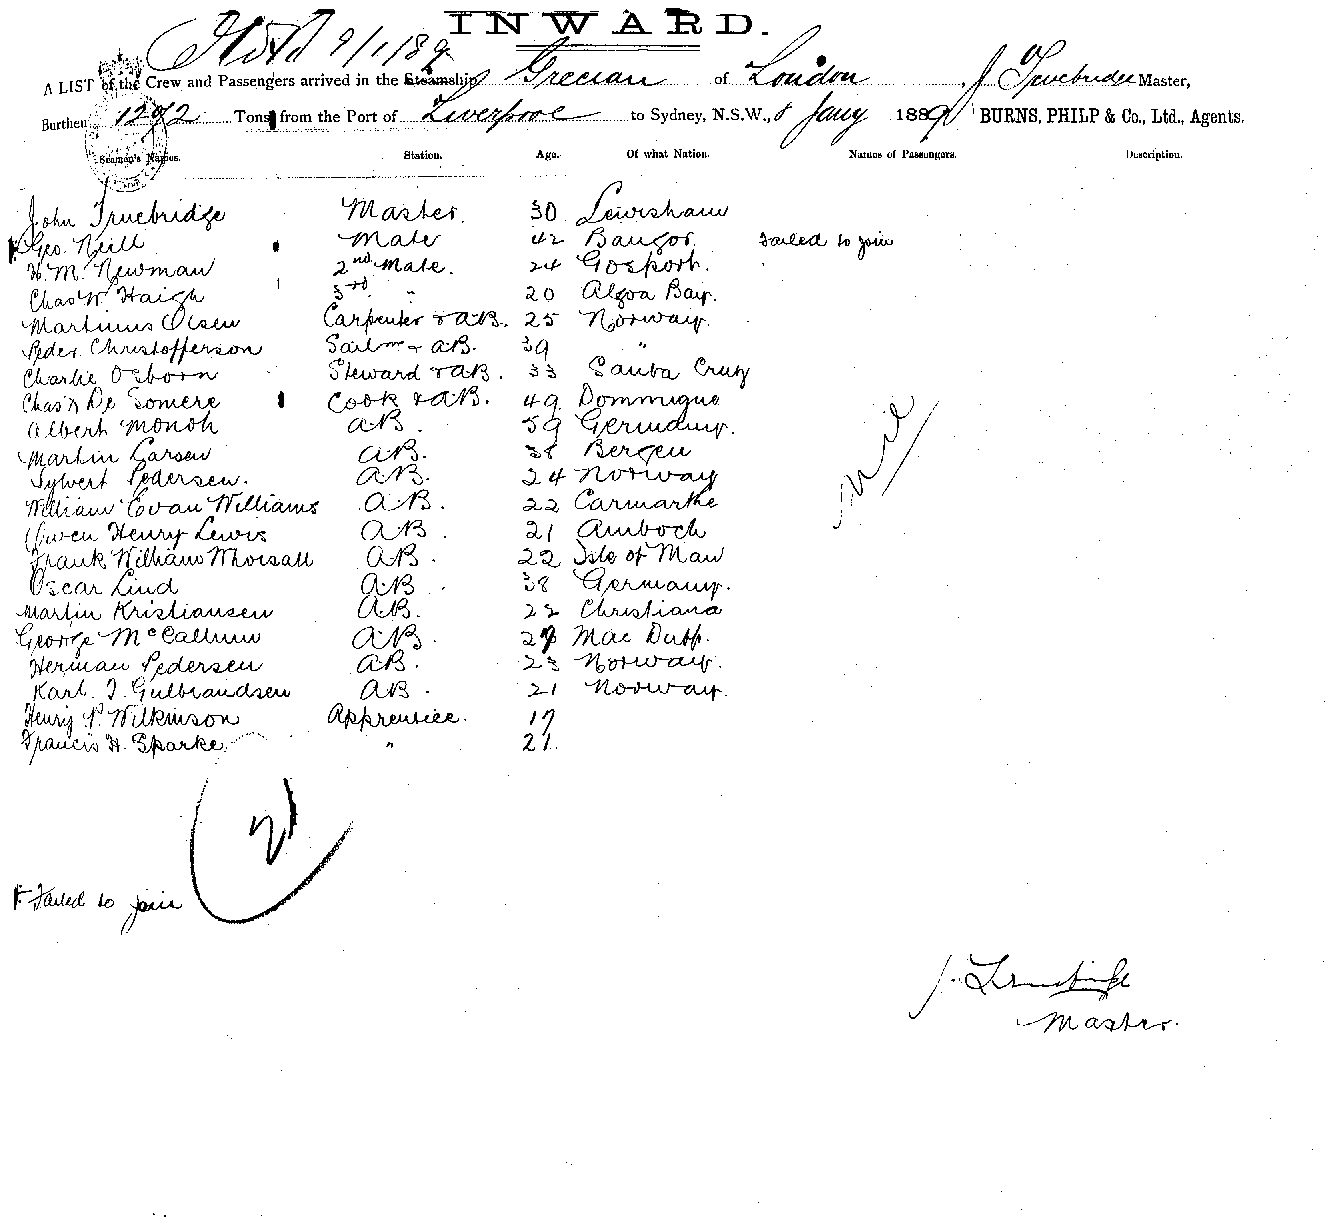 INWARD.
9/1/89
A LIST of the Crew and Passengers arrived in the Steamship Grecian of London J Truebridge Master,
Burthen 1292 Tons from the Port of Liverpool to Sydney, N.S.W., 8 Jany 1889 BURNS, PHILP & Co., Ltd., Agents.
Seamen's Names. Station. Age. Of what Nation. Names of Passengers. Description.
John Truebridge Master. 30 Lewisham
F. Geo. Neill Mate 42 Bangor. Failed to join
H. M. Newman 2nd Mate. 24 Gosport.
Chas W. Haigh 3rd " 20 Algoa Bay.
Martinius Olsen Carpenter & AB. 25 Norway.
Peder Christofferson Sailmr & AB. 39 "
Charlie Osborn Steward & AB. 33 Santa Cruz
Chas De Somere Cook & AB. 49 Dominique
Albert Monoh AB. 59 Germany.
Martin Larsen AB. 38 Bergen
Sylvert Pedersen. AB. 24 Norway
William Evan Williams AB. 22 Carmarthe
Owen Henry Lewis AB. 21 Amboch
Frank William Whorsall AB. 22 Isle of Man
Oscar Lind AB. 38 Germany.
Martin Kristiansen AB. 22 Christiana
George McCallum AB. 27 Mac Duff.
Herman Pedersen AB. 23 Norway.
Karl. J. Gulbrandsen AB. 21 Norway.
Henry P. Wilkinson Apprentice. 17
Francis H. Sparke " 21.
Nil
21
F. Failed to join
J. Truebridge
Master.